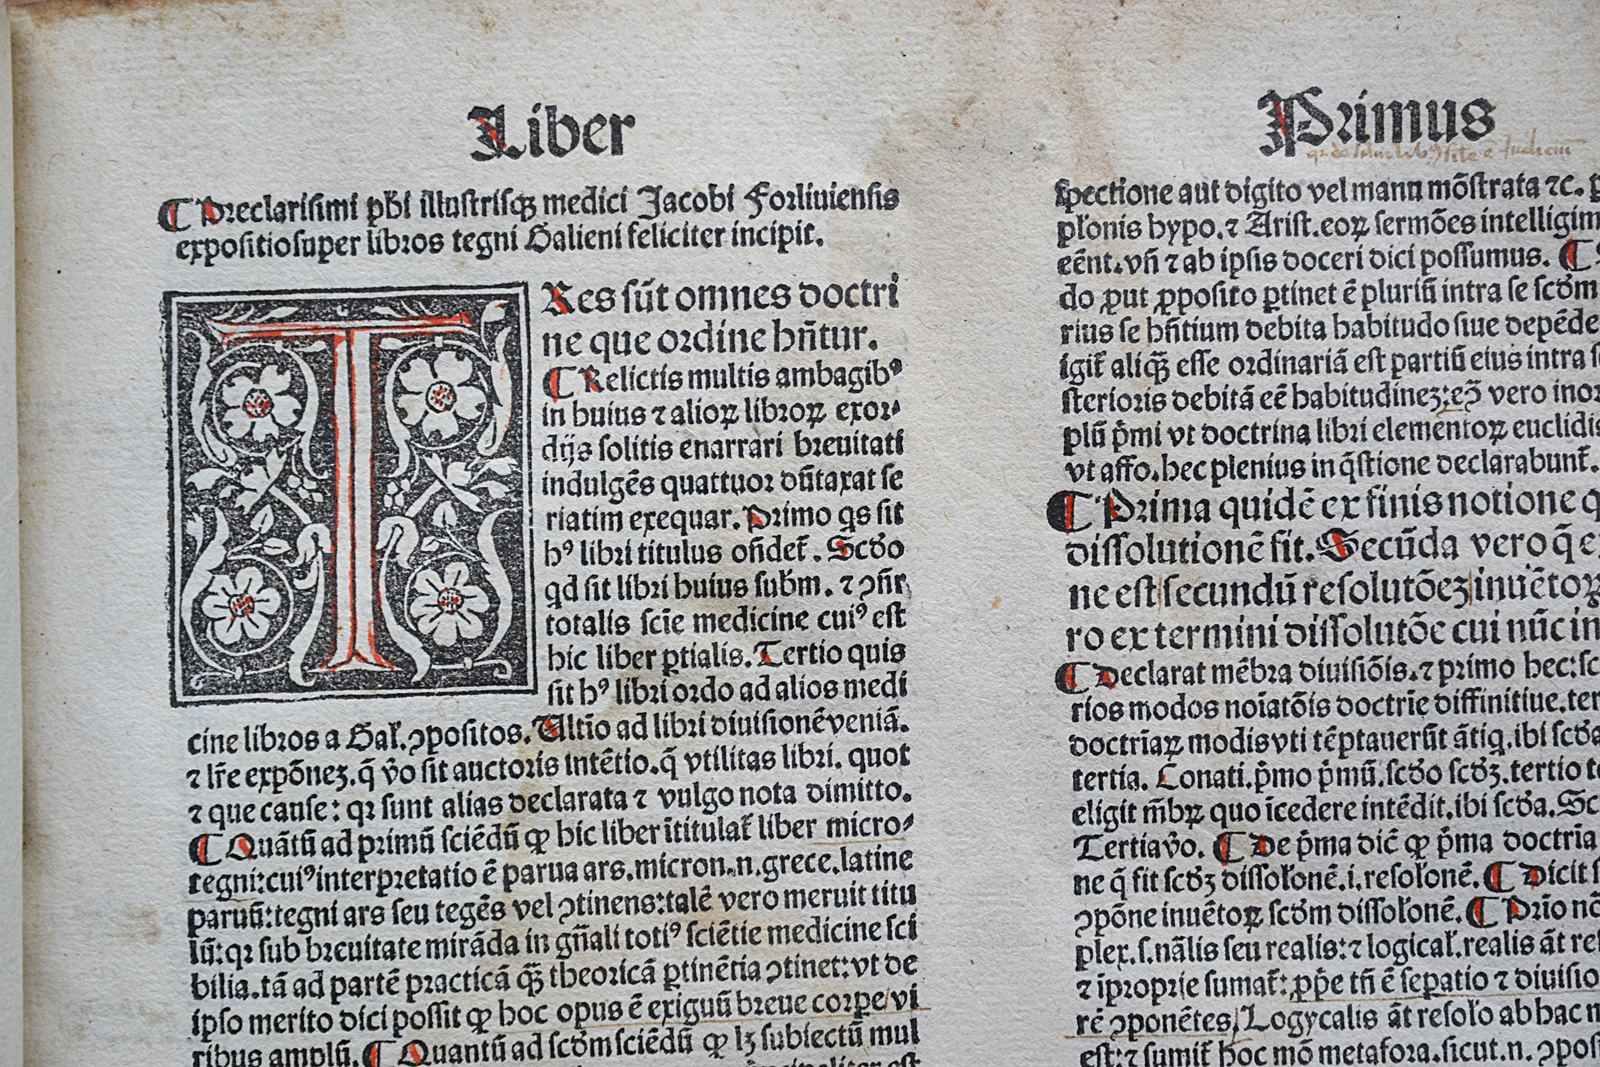 Liber
Primus
¶ Preclarisimi ph̄i illustrisqꝫ medici Jacobi Forliuiensis
expositiosuper libros tegni Galieni feliciter incipit.
T Res sūt omnes doctri
ne que ordine hn̄tur.
¶ Relictis multis ambagibꝰ
in huius ⁊ alioꝝ libroꝝ exor⸗
dijs solitis enarrari breuitati
indulgēs quattuor dūtaxat se
riatim exequar. Primo qs sit
hꝰ libri titulus on̄det̄. Scd̄o
qd sit libri huius subm̄. ⁊ ꝯn̄r
totalis scīe medicine cuiꝰ est
hic liber ꝑtialis. Tertio quis
sit hꝰ libri ordo ad alios medi
cine libros a Gal̄. ꝯpositos. Ultīo ad libri diuisionē veniā.
⁊ lr̄e expōnez. q̄ v̄o sit auctoris intētio. q̄ vtilitas libri. quot
⁊ que cause: qꝛ sunt alias declarata ⁊ vulgo nota dimitto.
¶ Quātū ad primū sciēdū ꝙ hic liber ītitulat̄ liber micro⸗
tegni: cuiꝰ interpretatio ē parua ars. micron. n. grece. latine
paruū: tegni ars seu tegēs vel ꝯtinens: talē vero meruit titu
lū: qꝛ sub breuitate mirāda in gn̄ali totiꝰ sciētie medicine sci
bilia. tā ad partē practicā qꝫ̄ theoricā ꝑtinētia ꝯtinet: vt de
ipso merito dici possit ꝙ hoc opus ē exiguū breue corpe vi
ribus amplū. ¶ Quantū ad scd̄m sciēdū ꝙ lꝫ subiectū mul
est
spectione aut digito vel manu mōstrata ⁊c. p
pl̄onis hypo. ⁊ Arist. eoꝝ sermōes intelligim
eēnt. vn̄ ⁊ ab ipsis doceri dici possumus. ¶
do ꝓut ꝓposito ꝑtinet ē pluriū intra se scd̄m
rius se hn̄tium debita habitudo siue depēde
igit̄ aliqꝫ̄ esse ordinariā est partiū eius intra s
sterioris debitā eē habitudinez: ex̄ vero inor
plū p̄mi vt doctrina libri elementoꝝ euclidis
vt affo. hec plenius in q̄stione declarabunt̄.
¶ Prima quidē ex finis notione q
dissolutionē fit. Secūda vero q̄ e
ne est secundū resolutōez inuētoꝝ
ro ex termini dissolutōe cui nūc in
¶ Declarat mēbra diuisiōis. ⁊ primo hec: sc
rios modos noīatōis doctrīe diffinitiue. ter
doctrīaꝝ modis vti tēptauerūt ātiq. ibi scd̄a
tertia. Conati. p̄mo p̄mū. scd̄o scd̄ꝫ. tertio te
eligit m̄bꝝ quo īcedere intēdit. ibi scd̄a. Sc
Tertia v̄o. ¶ De p̄ma dic̄ ꝙ p̄ma doctrīa
ne q̄ fit scd̄ꝫ dissol̄onē. i. resol̄onē. ¶ Dicit s
ꝯpōne inuētoꝝ scd̄m dissol̄onē. ¶ Prīo nō
plex. s. nālis seu realis: ⁊ logical̄. realis āt re
⁊ iproprie sumat̄: ꝓp̄e tn̄ ē sepatio ⁊ diuisio
rē ꝯponētes, Logycalis āt resol̄o ab hac n
est: ⁊ sumit̄ hoc mō metafora. sicut. n. ꝯpos